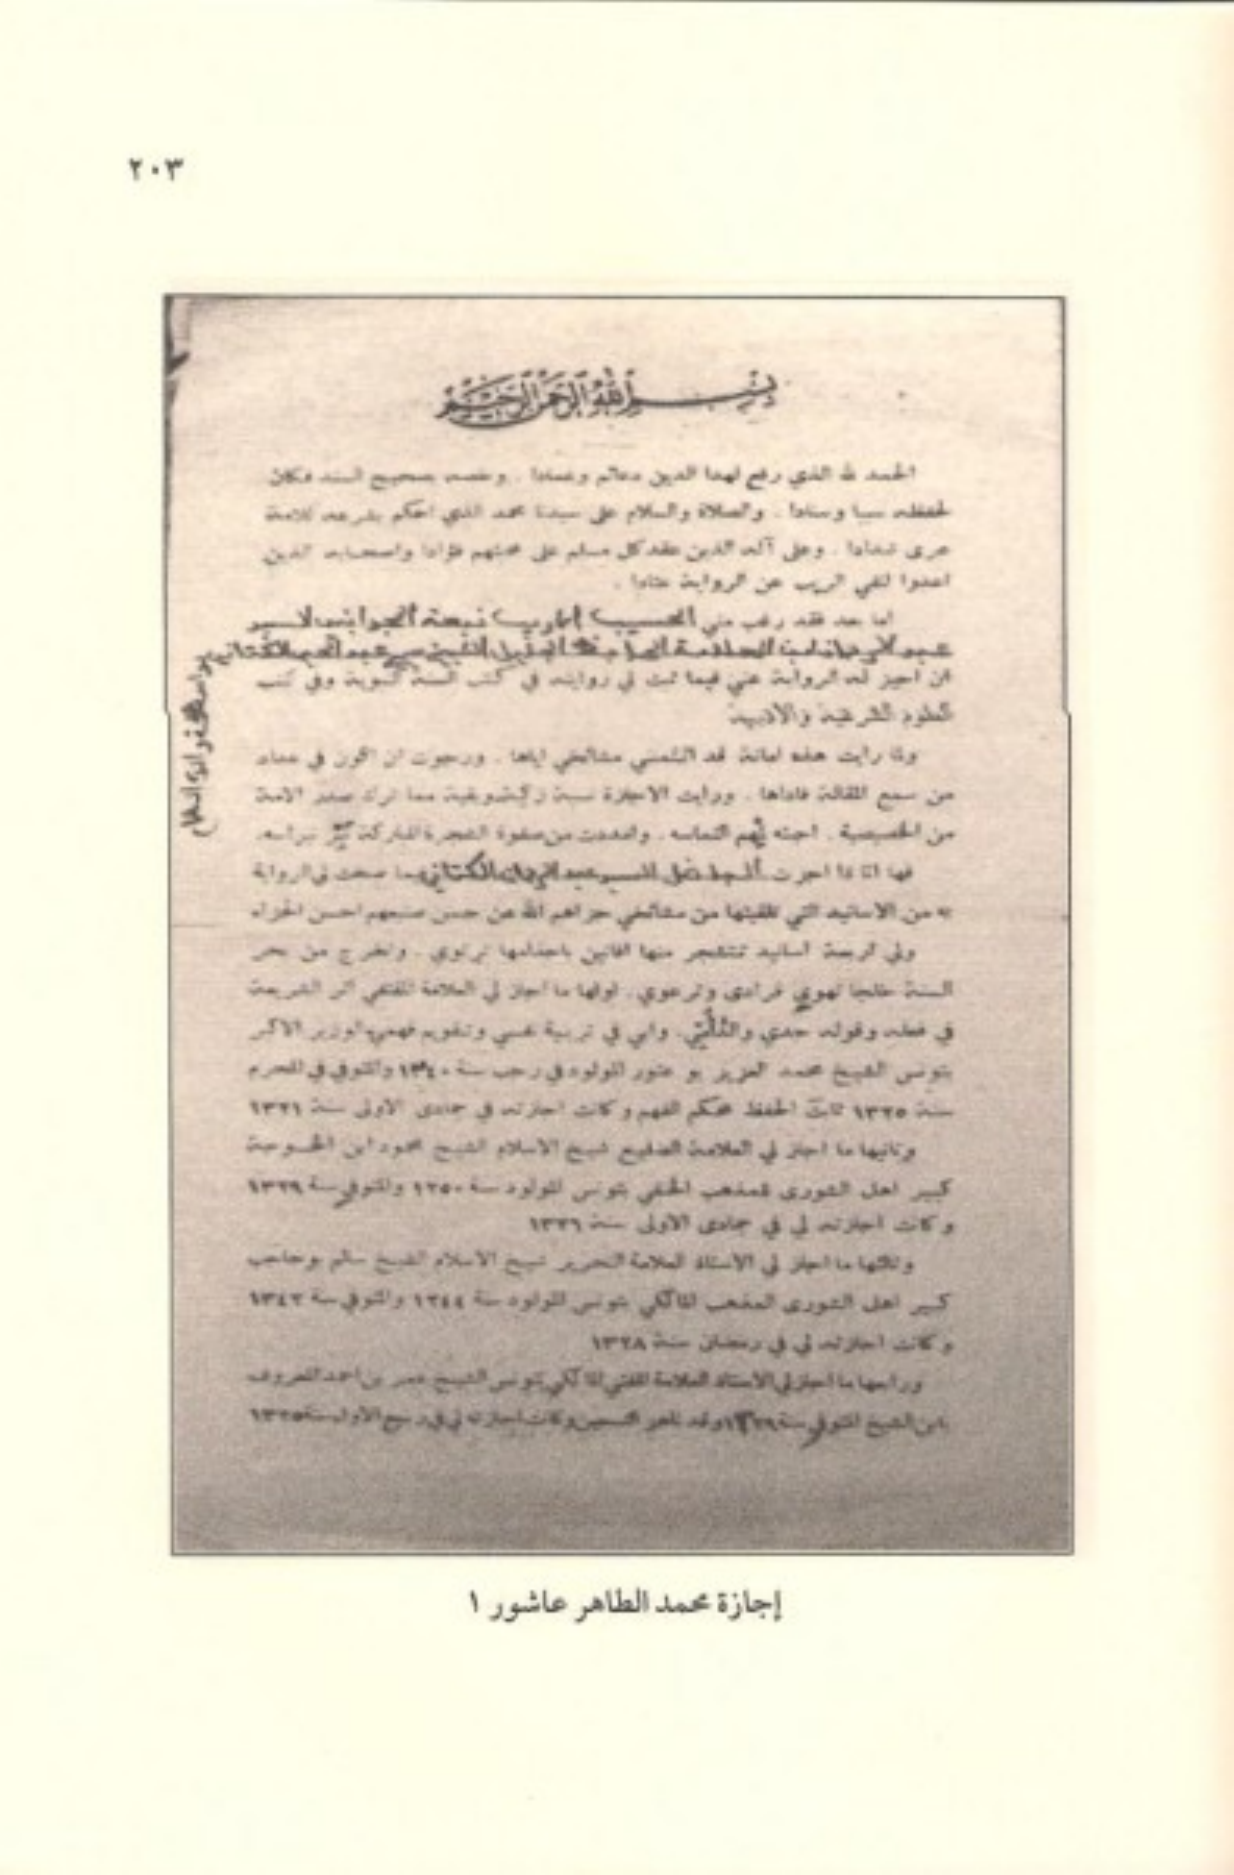 ٢٠٣
بسم الله الرحمن الرحيم
الحمد لله الذي رفع لهذا الدين دعائم وعمادا . وخصه بصحيح السند فكان
لحفظه سببا وسنادا . والصلاة والسلام على سيدنا محمد الذي احكم بشرعه للامة
عرى شدادا . وعلى آله الذين عقد كل مسلم على محبتهم فؤادا واصحابه الذين
اعدوا لنفي الريب عن الرواية عتادا .
اما بعد فقد رغب مني الحسيب
عبد العلامة الجليل الشيخ سيدي عبد الحي الكتاني
ان اجيز له الرواية عني فيما ثبت لي روايته في كتب السنة النبوية وفي كتب
العلوم الشرعية والادبية
ولما رايت هذه امانة قد ائتمنني مشائخي اياها . ورجوت ان اكون في عداد
من سمع المقالة فاداها . ورايت الاجازة نسبة وبقية مما ترك صدر الامة
من الخصيصية . اجبته التماسه . من صفوة الشجرة المباركة نبراسه .
فها انا ذا اجزت الكتاني بما صحت لي الرواية
به من الاسانيد التي تلقيتها من مشائخي جزاهم الله عن حسن صنيعهم احسن الجزاء
ولي اربعة اسانيد تتشجر منها افانين باجذامها ترتوي . وتخرج من بحر
السنة خلجا تهوي فرادى وترعوي . اولها ما اجاز لي العلامة المقتفي اثر الشريعة
في فعله وقوله جدي وابي في تربية نفسي وتقويم فهمي الوزير الاكبر
بتونس الشيخ محمد العزيز بو عتور المولود في رجب سنة ١٢٤٠ والمتوفي في المحرم
سنة ١٣٢٥ ثابت الحفظ محكم الفهم وكانت اجازته في جمادى الاولى سنة ١٣٢١
وثانيها ما اجاز لي العلامة الضليع شيخ الاسلام الشيخ محمود ابن الخوجة
كبير اهل الشورى للمذهب الحنفي بتونس المولود سنة ١٢٥٠ والمتوفي سنة ١٣٢٩
وكانت اجازته لي في جمادى الاولى سنة ١٣٢٦
وثالثها ما اجاز لي الاستاذ العلامة النحرير شيخ الاسلام الشيخ سالم بوحاجب
كبير اهل الشورى للمذهب المالكي بتونس المولود سنة ١٢٤٤ والمتوفي سنة ١٣٤٢
وكانت اجازته لي في رمضان سنة ١٣٢٨
ورابعها ما اجاز لي الاستاذ العلامة المفتي المالكي بتونس الشيخ عمر بن احمد المعروف
بابن الشيخ المتوفي سنة ١٣٢٩ وقد ناهز التسعين وكانت اجازته لي في ربيع الاول سنة ١٣٢٥
إجازة محمد الطاهر عاشور ١